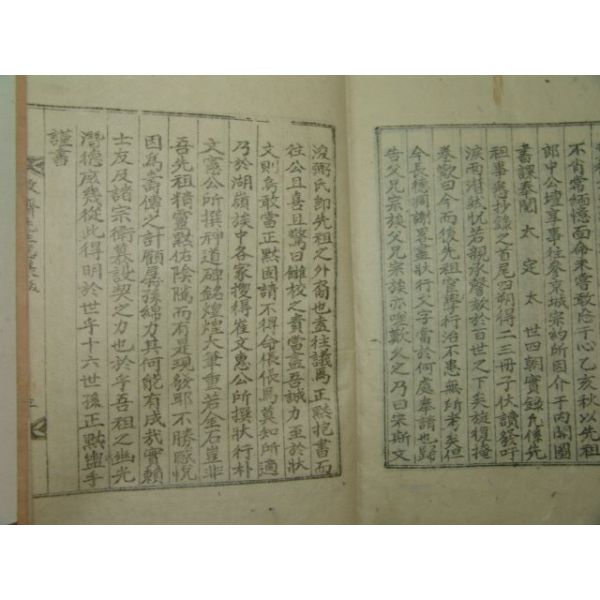 不肖當緬憶面命來耆敢應于心乙亥秋以先祖
郎中公壇享事往參京城宗約所因介于內閣圖
書課奉閱 太 定 太 世四朝實錄凡係先
祖事耆抄錄之首尾四朔得二三冊子伏讀發吁
淚而潸然怳若親承謦欬於百世之下矣旋復掩
卷歎曰今而後先祖官學行治不患無所考矣但
今長德嗣謝畧盡狀行文字當於何處奉請也歸
告父兄宗族父兄宗族亦嗟歎久之乃曰宗斯文
浚弼氏郎先祖之外裔也盍往議焉正默抱書而
往公且喜且驚曰讎校之責當盡吾誠力至於狀
文則焉敢當正默固請不得命倀倀焉莫知所適
乃於湖嶺族中各家搜得崔文惠公所撰狀行朴
文憲公所撰神道碑銘煌煌大筆重若金石豈非
吾先祖精靈默佑陰隲而有是現發耶不勝感悅
因爲壽傳之計顧孱孫綿力其何能有成哉實賴
士友及諸宗衛慕設契之力也於乎吾祖之幽光
潛德庶幾從此得明於世乎十六世孫正默盥手
謹書